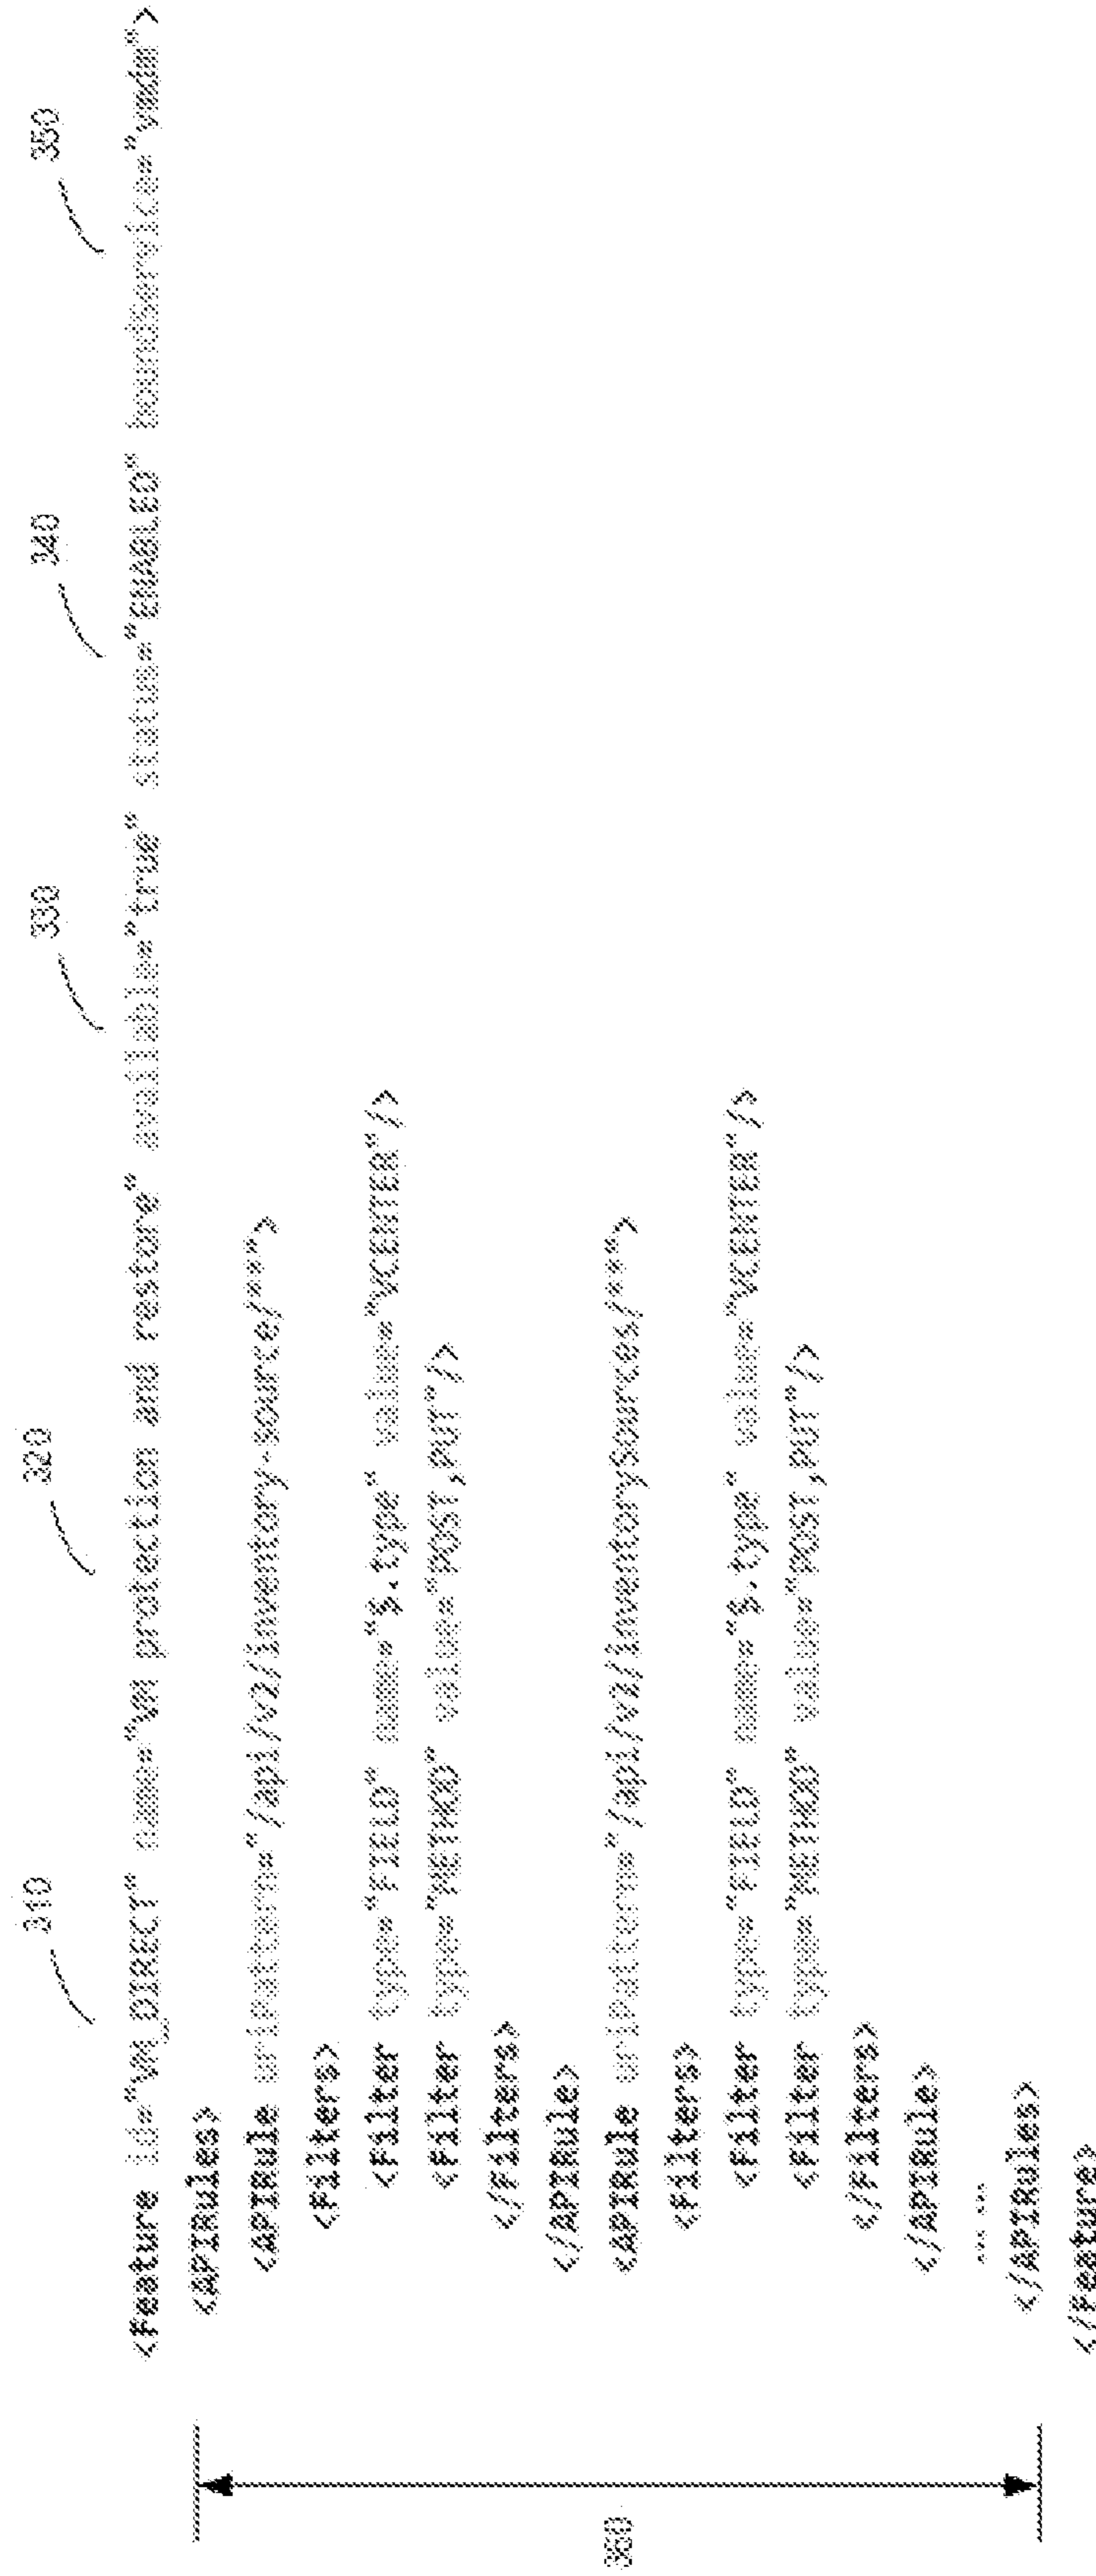 310 320 330 340 350
<Feature id="VM_DIRECT" name="VM protection and restore" available="true" status="ENABLED" boundService="vmdm">
<APIRules>
<APIRule uriPattern="/api/v2/inventory-source/**">
<Filters>
<Filter type="FIELD" name="$.type" value="VCENTER"/>
<Filter type="METHOD" value="POST,PUT"/>
</Filters>
</APIRule>
<APIRule uriPattern="/api/v2/inventorySources/**">
<Filters>
<Filter type="FIELD" name="$.type" value="VCENTER"/>
<Filter type="METHOD" value="POST,PUT"/>
</Filters>
</APIRule>
... ...
</APIRules>
</Feature>
360